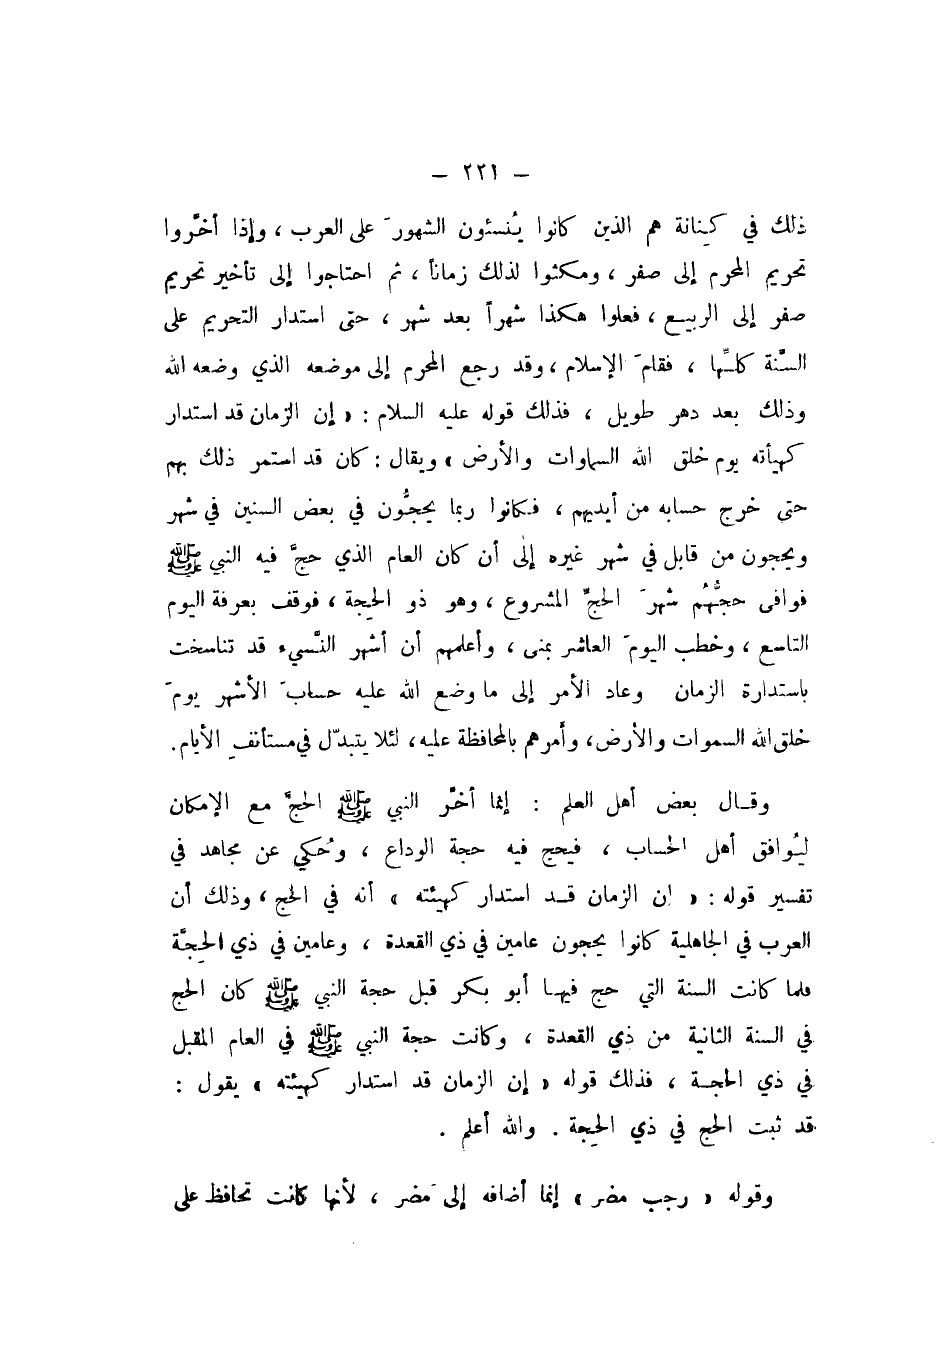 – ٢٢١ –
ذلك في كِنانة هم الذين كانوا يُنسئون الشهورَ على العرب ، وإذا أخَّروا
تحريم المحرم إلى صفر ، ومكثوا لذلك زماناً ، ثم احتاجوا إلى تأخير تحريم
صفر إلى الربيع ، فعلوا هكذا شهراً بعد شهر ، حتى استدار التحريم على
السَّنة كلِّها ، فقامَ الإسلام ، وقد رجع المحرم إلى موضعه الذي وضعه الله
وذلك بعد دهر طويل ، فذلك قوله عليه السلام : « إن الزمان قد استدار
كهيأته يوم خلق الله السماوات والأرض » ويقال : كان قد استمر ذلك بهم
حتى خرج حسابه من أيديهم ، فكانوا ربما يحجُّون في بعض السنين في شهر
ويحجون من قابل في شهر غيره إلى أن كان العام الذي حجَّ فيه النبي ﷺ
فوافى حجُّهُم شهرَ الحجِّ المشروع ، وهو ذو الحِجة ، فوقف بعرفة اليوم
التاسع ، وخطب اليومَ العاشر بمنى ، وأعلمهم أن أشهر النَّسيء قد تناسخت
باستدارة الزمان وعاد الأمر إلى ما وضع الله عليه حسابَ الأشهر يومَ
خلق الله السموات والأرض، وأمرهم بالمحافظة عليه، لئلا يتبدّل في مستأنفِ الأيام.
وقال بعض أهل العلم : إنما أخَّر النبي ﷺ الحجَّ مع الإمكان
ليُوافق أهل الحساب ، فيحج فيه حجة الوداع ، وحُكي عن مجاهد في
تفسير قوله : « إن الزمان قد استدار كهيئته » أنه في الحج ، وذلك أن
العرب في الجاهلية كانوا يحجون عامين في ذي القعدة ، وعامين في ذي الحِجَّة
فلما كانت السنة التي حج فيها أبو بكر قبل حجة النبي ﷺ كان الحج
في السنة الثانية من ذي القعدة ، وكانت حجة النبي ﷺ في العام المقبل
في ذي الحجة ، فذلك قوله « إن الزمان قد استدار كهيئته » يقول :
قد ثبت الحج في ذي الحِجة . والله أعلم .
وقوله « رجب مضر » إنما أضافه إلى مضر ، لأنها كانت تحافظ على